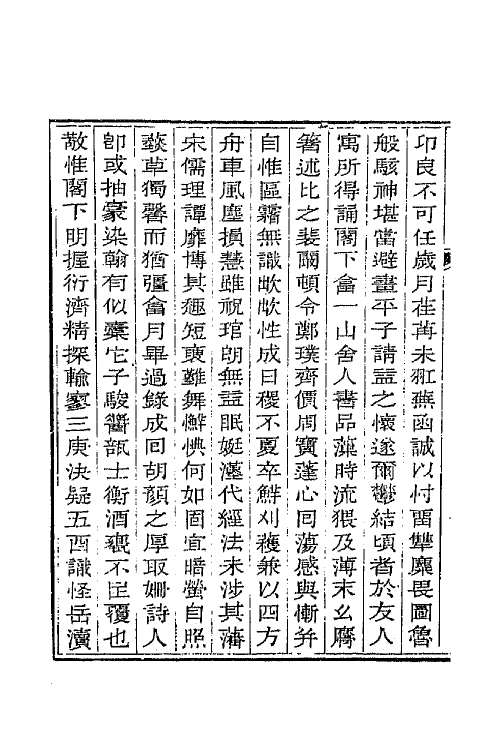 卬良不可任歲月荏苒未𦀇燕函誠以忖畱犨麋畏圖魯
般駭神堪當避晝平子請益之懷遂爾鬱結頃者於友人
寓所得誦閣下畣一山舍人書品藻時流猥及薄末幺麿
箸述比之裴爾頓令鄭璞齊價周寶蓬心回蕩感與慚并
自惟區霿無識歑歑性成日稷不夏卒鮮刈穫兼以四方
舟車風塵損慧雖祝琯朗無益眠娗漢代經法未涉其藩
宋儒理譚靡博其極短䙝難舞懈惉何如固宜暗螢自照
蓺草獨馨而猶彊畣月畢過錄成回胡顏之厚取姍詩人
卽或抽豪染翰有似棄它子駿醬瓿士衡酒甕不足覆也
敬惟閣下明握衍濟精探輸寥三庚決疑五酉識怪岳瀆